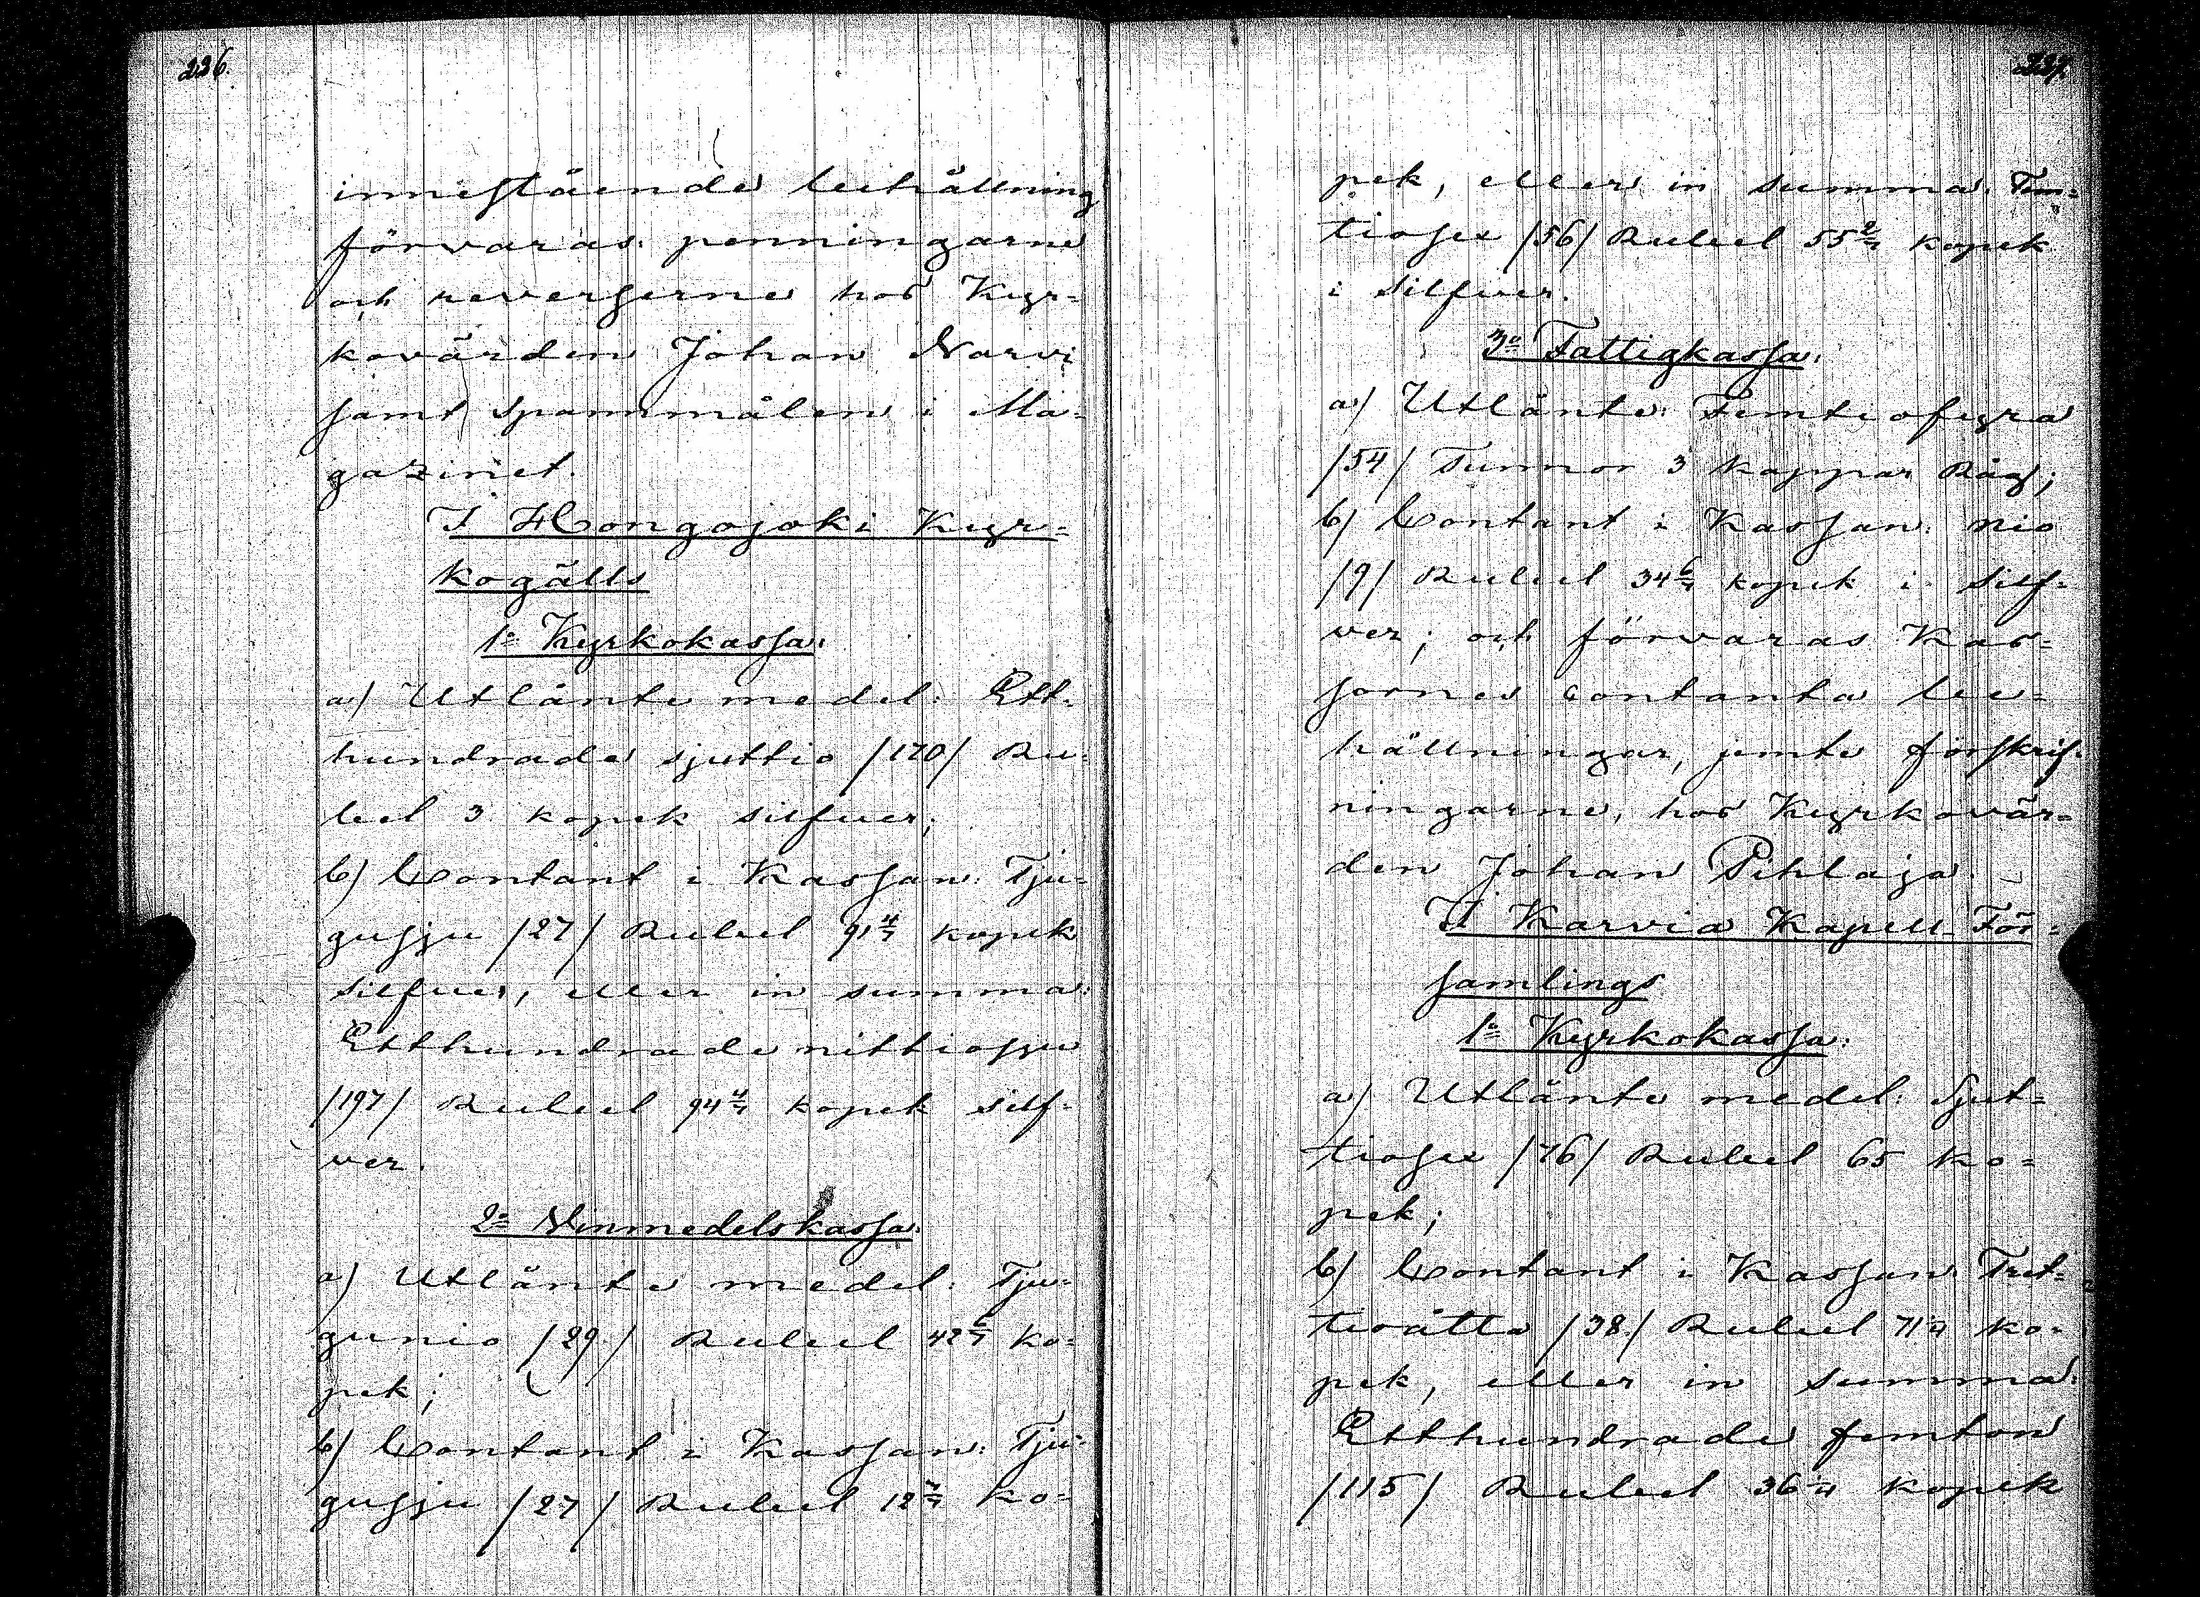 226.
innestående behållning
förvaras penningarne
och reverserne hos Kyr=
kovärden Johan Narvi
samt Spannmålen i Ma=
gazinet.
I Hongojoki Kyr=
kogälls
1º Kyrkokassa:
a) Utlänte medel: Ett=
hundrade sjuttio /170/ Ru=
bel 3 kopek silfver;
b) Contant i Kassan: Tju=
gusju /27/ Rubel 91 4/7 kopek
silfver, eller in summa:
Etthundrade nittiosju
/197/ Rubel 94 4/7 kopek silf=
ver.
2º Vinmedelskassa:
a) Utlänte medel: Tju=
gunio /29/ Rubel 42 6/7 ko=
pek;
b) Contant i Kassan: Tju=
gusju /27/ Rubel 12 ko=
227.
pek, eller in summa: Fem=
tiosex /56/ Rubel 55 2/7 kopek
i silfver.
3º Fattigkassa:
a) Utlänte: Femtiofyra
/54/ Tunnor 3 kappar Råg;
b) Contant i Kassan: nio
/9/ Rubel 34 6/7 kopek i silf=
ver; och förvaras Kas=
sornes contanta be=
hållningar, jemte förskrif=
ningarne, hos Kyrkovär=
den Johan Pihlaja.
I Karvia Kapell-För=
samlings
1º Kyrkokassa:
a) Utlänte medel: Sjut=
tiosex /76/ Rubel 65 ko=
pek;
b) Contant i Kassan: Tret=
tioåtta /38/ Rubel 71 ko=
pek, eller in summa:
Etthundrade femton
/115/ Rubel 36 kopek